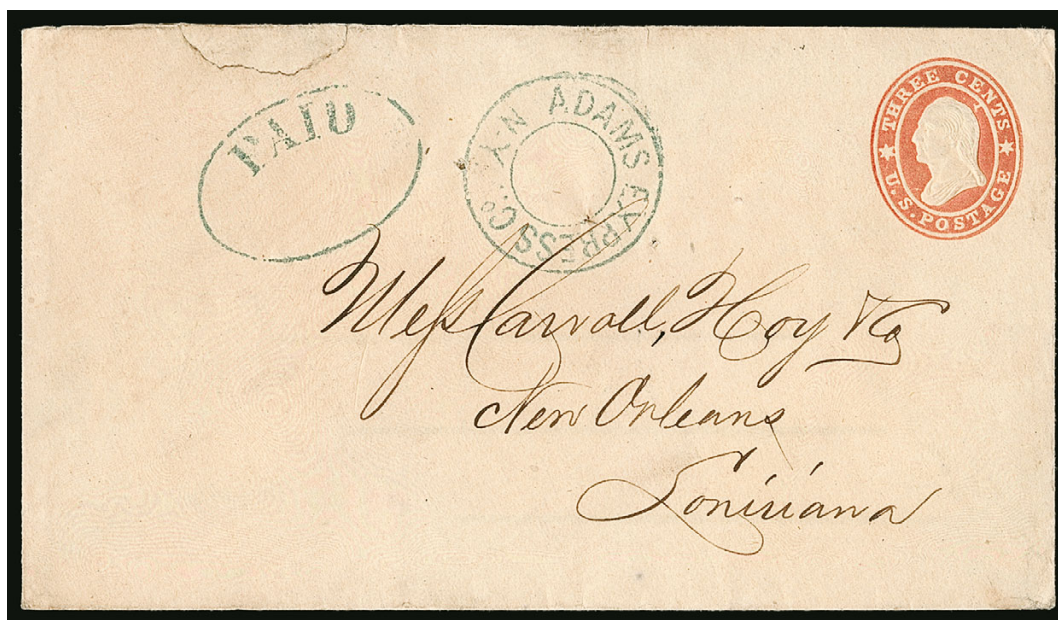 PAID
ADAMS EXPRESS Co. N.Y.
THREE CENTS
U.S. POSTAGE
Mess Carroll, Hoy & Co
New Orleans
Louisiana